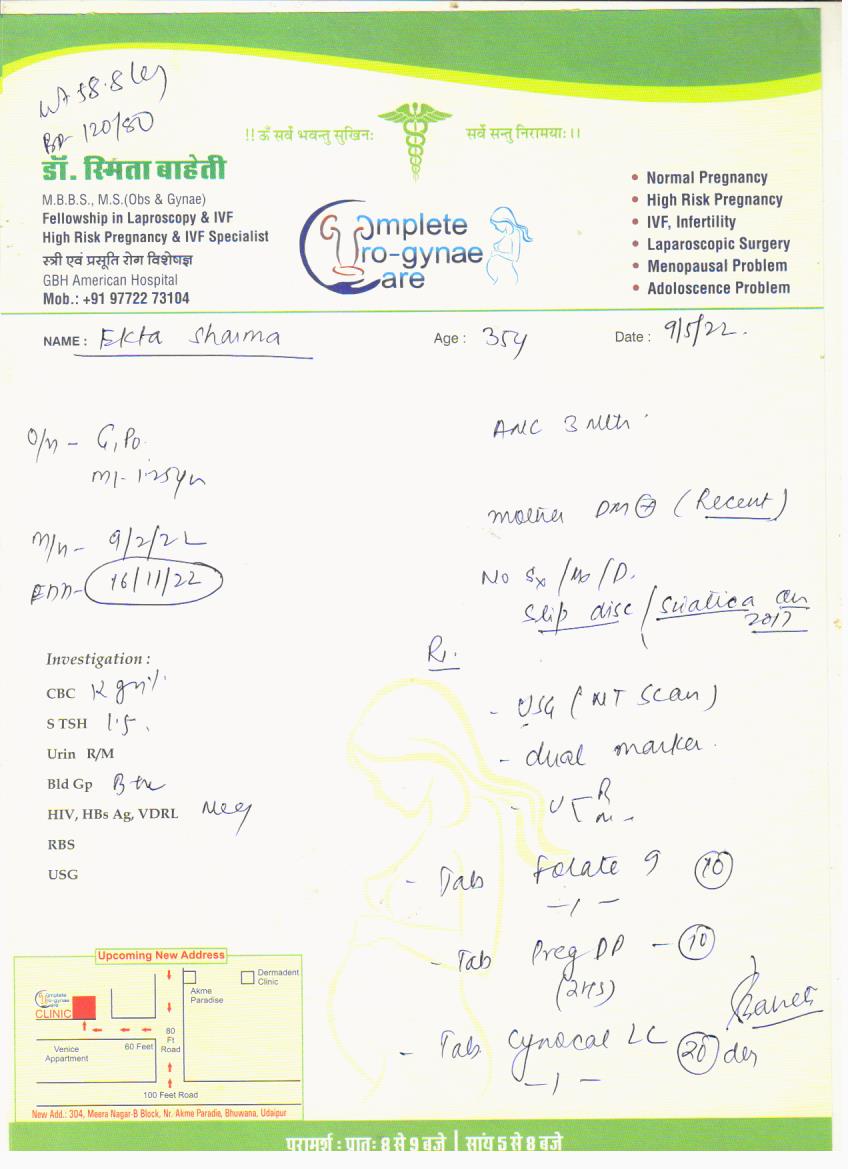 Wt 58.8 kg
BP 120/80
!! ॐ सर्वे भवन्तु सुखिनः सर्वे सन्तु निरामयाः।।
डॉ. स्मिता बाहेती
M.B.B.S., M.S.(Obs & Gynae)
Fellowship in Laproscopy & IVF
High Risk Pregnancy & IVF Specialist
स्त्री एवं प्रसूति रोग विशेषज्ञ
GBH American Hospital
Mob.: +91 97722 73104
Complete
Uro-gynae
Care
• Normal Pregnancy
• High Risk Pregnancy
• IVF, Infertility
• Laparoscopic Surgery
• Menopausal Problem
• Adoloscence Problem
NAME : Ekta Sharma Age : 35y Date : 9/5/22.
O/H - G1P0
M/H - 9/2/22
EDD - 16/11/22
ANC 3 Mth
Mother DM (Recent)
No Sx
Slip disc / Sciatica
2017
Rx
- USG (NT Scan)
- dual marker
- U R
M
- Tab Folate 9 10
-1-
- Tab Preg DP - 10
- Tab Cynocal LC 20
-1-
Investigation :
CBC
S TSH 1.5
Urin R/M
Bld Gp B +ve
HIV, HBs Ag, VDRL Neg
RBS
USG
Upcoming New Address
Complete
Uro-gynae
Care
CLINIC
Akme
Paradise
Dermadent
Clinic
Venice
Appartment
60 Feet
80
Ft
Road
100 Feet Road
New Add.: 304, Meera Nagar-B Block, Nr. Akme Paradie, Bhuwana, Udaipur
परामर्श : प्रातः 8 से 9 बजे | सांय 5 से 8 बजे